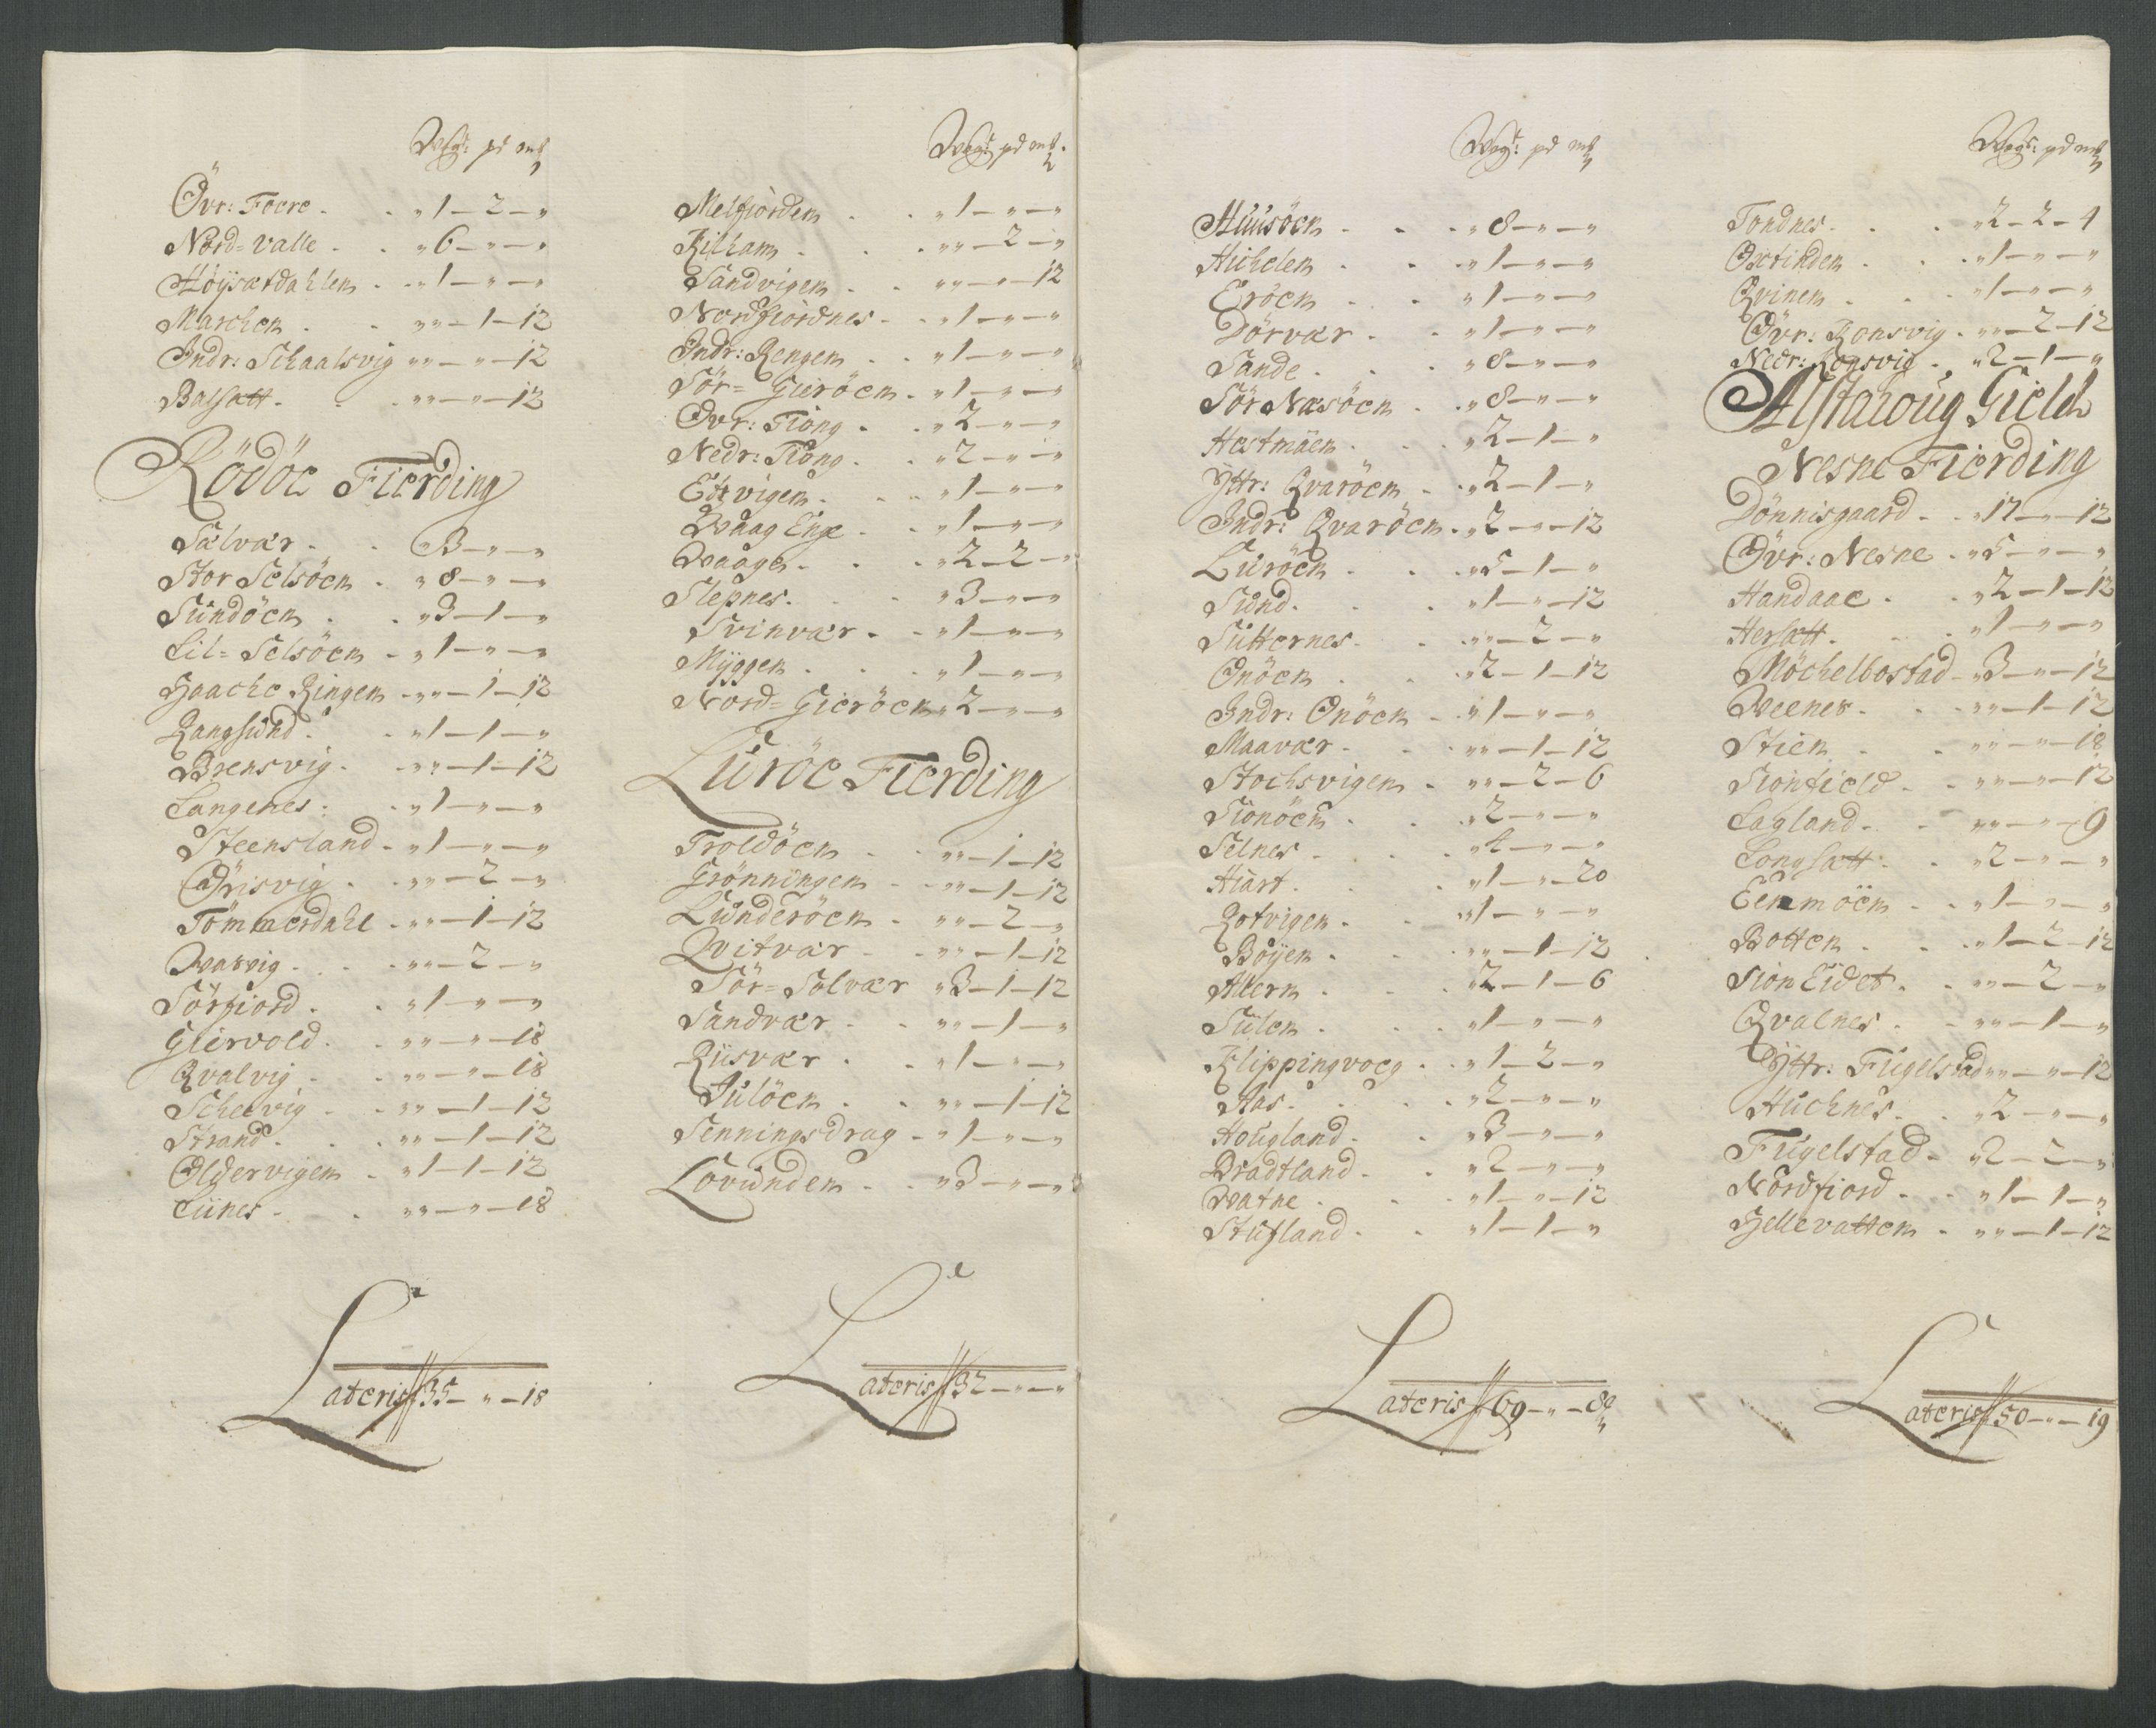 Wog: pd mk
Övr: Foere . . „1 – 2 – „
Nord=valle . . „6 – „ – „
Höÿsætdahlen . . „1 – „ – „
Marchen . . „„ – 1 – 12
Indr: Schaalsvig „„ – „ – 12
Balsætt . . „„ – „ – 12
Rödöe Fierding
Sælvær . . „3 – „ – „
Stor Selsöen . „8 – „ – „
Sundöen . . „3 – 1 – „
Lil=Selsöen – „1 – „ – „
Haache Ringen – „„ – 1 – 12
Rangsund . . „1 – 1 – „
Brensvig . . „„ – 1 – 12
Langenes: . „1 – „ – „
Steensland – „1 – „ – „
Örisvig . . „„ – 2 – „
Tömmerdahl – „„ – 1 – 12
Warvig . . „„ – 2 – „
Sörfiord . . „1 – „ – „
Giervold . . „„ – „ – 18
Qvalvig . . „„ – „ – 18
Scheevig . . „„ – 1 – 12
Strand . . „„ – 1 – 12
Oldervigen . „1 – 1 – 12
Liines . . „„ – „ – 18
Lateris 35 – „ – 18
Wog: pd mk.
Melfiorden . . „1 – „ – „
Kilham . . „„ – 2 – „
Sandvigen . . „„ – „ – 12
Nordfiordnes . „1 – „ – „
Indr: Rengen . . „1 – „ – „
Sör=Gieröen . „1 – „ – „
Övr: Tiong . . „2 – „ – „
Nedr: Tiong . . „2 – „ – „
Etvigen . . „1 – „ – „
Waag Enge . „1 – „ – „
Waagen . . „2 – 2 – „
Slepnes . . „3 – „ – „
Svinvær . . „1 – „ – „
Mÿggen . . „1 – „ – „
Nord=Gieröen „2 – „ – „
Luröe Fierding
Troldöen . . „„ – 1 – 12
Grönningen . . „„ – 1 – 12
Lunderöen . „„ – 2 – „
Qvitvær . . „„ – 1 – 12
Sör=Solvær „3 – 1 – 12
Sandvær . . „„ – 1 – „
Riisvær . . „1 – „ – „
Sulöen . . „„ – 1 – 12
Senningsdrag – „1 – „ – „
Lovunden . . „3 – „ – „
Lateris 32 – „ – „
Wog: pd mk
Huusöen . . „8 – „ – „
Hichelen . . „1 – „ – „
Eröen . . „1 – „ – „
Dörvær . . „1 – „ – „
Sande . . „8 – „ – „
Sör Næsöen . „8 – „ – „
Hestmäen . . „2 – 1 – „
Ÿttr: Qvaröen . „2 – 1 – „
Indr: Qvaröen . „2 – „ – 12
Luröen . . „5 – 1 – „
Sund . . „1 – „ – 12
Sutternes . . „„ – 2 – „
Onöen . . „2 – 1 – 12
Indr: Onöen – „1 – „ – „
Maavær . . „„ – 1 – 12
Stochsvigen . „„ – 2 – 6
Sionöen . . „2 – „ – „
Selnes . . „ – „ – „
Hiart . . „1 – „ – 20
Rotvigen . . „1 – „ – „
Böÿen . . „„ – 1 – 12
Alteren . . „2 – 1 – 6
Sulen . . „1 – „ – „
Klippingvoeg . „1 – 2 – „
Aas . . „2 – „ – „
Hougland . . „3 – „ – „
Bradtland . . „2 – „ – „
Watne . . „1 – „ – 12
Stufland . . „1 – 1 – „
Lateris 69 – „ – 8
Wog: pd mk
Tondnes . . „2 – 2 – 4
Oxtinden . . „1 – „ – „
Qvinen . . „1 – „ – „
Övr: Ronsvig . „„ – 2 – 12
Nedr: Ronsvig . „2 – 1 – „
Alstahoug Gield
Nesne Fierding
Dönnisgaard . . „17 – „ – 12
Övr: Nesne . „5 – „ – „
Handaae . . „2 – 1 – 12
Hersætt . . „1 – „ – „
Möchelbostad – „3 – „ – 12
Weenes . . „„ – 1 – 12
Stien . . „„ – „ – 18
Sionfield . . „„ – „ – 12
Lagland . . „„ – „ – 9
Longsætt . . „2 – „ – „
Eenmöen . . „1 – „ – „
Botten . . „1 – 2 – 12
Sion Eidet . . „„ – 2 – „
Qvalnes . . „„ – 1 – „
Ÿttr: Fugelstad „„ – „ – 12
Huchnes . . „2 – „ – „
Fugelstad . „2 – 2 – „
Nordfiord . . „1 – 1 – „
Hellevatten . „„ – 1 – 12
Lateris 50 – „ – 19